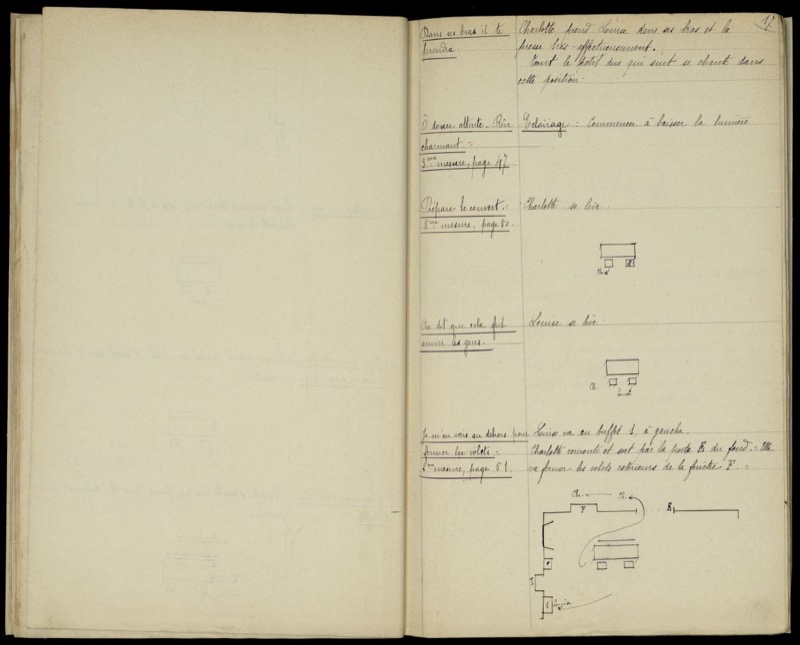 17
Dans ses bras il te
prendra.
Charlotte prend Louise dans ses bras et la
presse très-affectueusement.
Tout le petit duo qui suit se chante dans
cette position.
Ô douce attente. Rêve
charmant =
3ème mesure, page 47.
Eclairage = Commencer à baisser la lumière
Prépare le couvert.
5ème mesure, page 50.
Charlotte se lève.
On dit que cela fait
arriver les gens.
Louise se lève
Ch.
Je m'en vais au dehors pour
fermer les volets. =
mesure, page 51.
Louise va au buffet 1. à gauche.
Charlotte remonte et sort par la porte B du fond. = Elle
va fermer les volets extérieurs de la fenêtre F. =
Ch. Ch.
F B
1 Louise